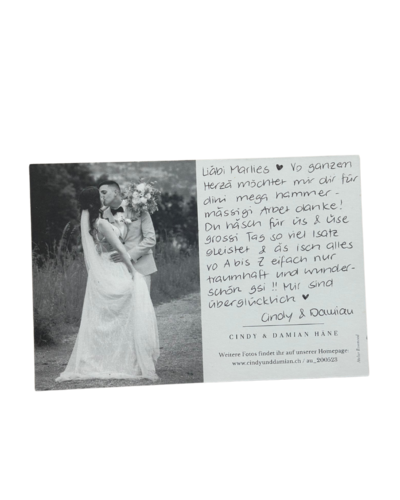 Liäbi Marlies ♥ Vo ganzen
Herzä möchtet mir dir für
dini mega hammer-
mässigi Arbet danke!
Du häsch für üs & üse
grossi Tag so viel Isatz
gleistet & äs isch alles
vo A bis Z eifach nur
traumhaft und wunder-
schön gsi!! Mir sind
überglücklich ♥
Cindy & Damian
CINDY & DAMIAN HÄNE
Weitere Fotos findet ihr auf unserer Homepage:
www.cindyunddamian.ch /